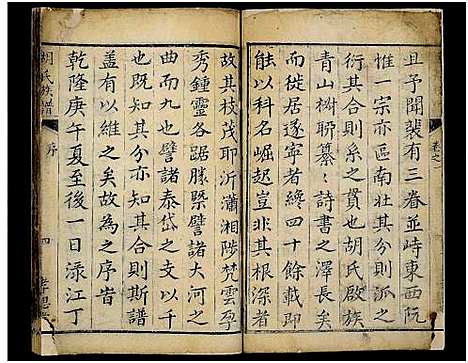 且予聞裴有三眷並峙東西阮
惟一宗亦區南北其分則派之
衍其合則系之貫也胡氏啟族
青山樹聯纂纂詩書之澤長矣
而徙居遂寧者終四十餘載即
能以科名崛起豈非其根深者
故其枝茂耶沂瀟湘陟梵雲孕
秀鍾靈各踞勝槩譬諸大河之
曲而九也譬諸泰岱之支以千
也既知其分亦知其合則斯譜
蓋有以維之矣故為之序旹
乾隆庚午夏至後一日淥江丁
胡氏族譜
序
四
孝思堂
卷之